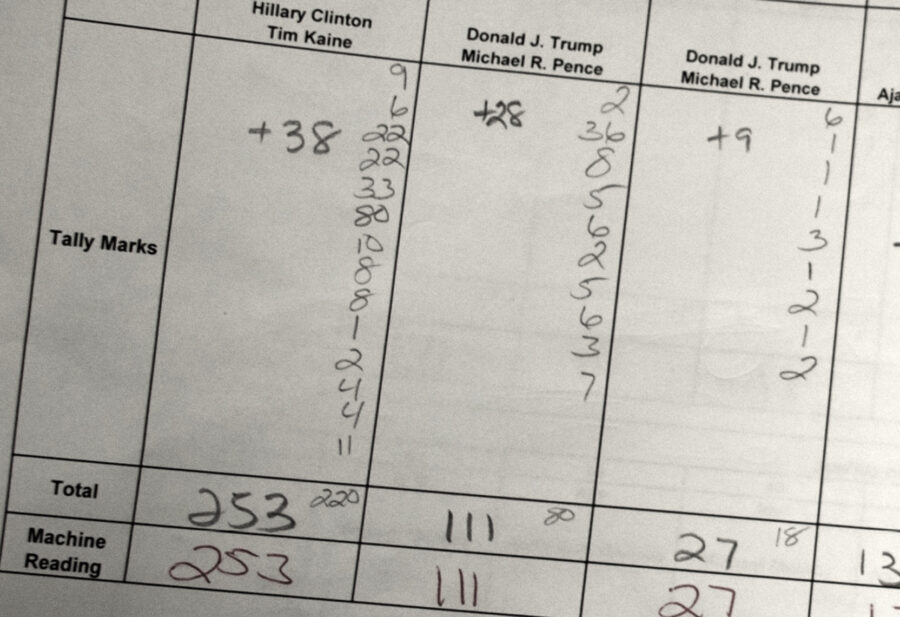 Hillary Clinton
Tim Kaine
Donald J. Trump
Michael R. Pence
Donald J. Trump
Michael R. Pence
Aja
Tally Marks
+38
9
6
22
22
33
8
8
8
1
2
4
4
11
+28
2
36
8
5
6
2
5
6
3
7
+9
6
1
1
1
3
1
2
1
2
Total
253 220
111 80
27 18
13
Machine
Reading
253
111
27